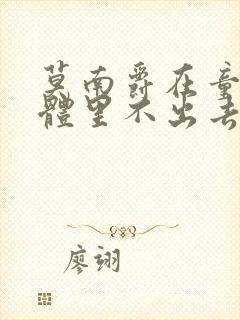 莫南爵在童
體里不出去
廖翊